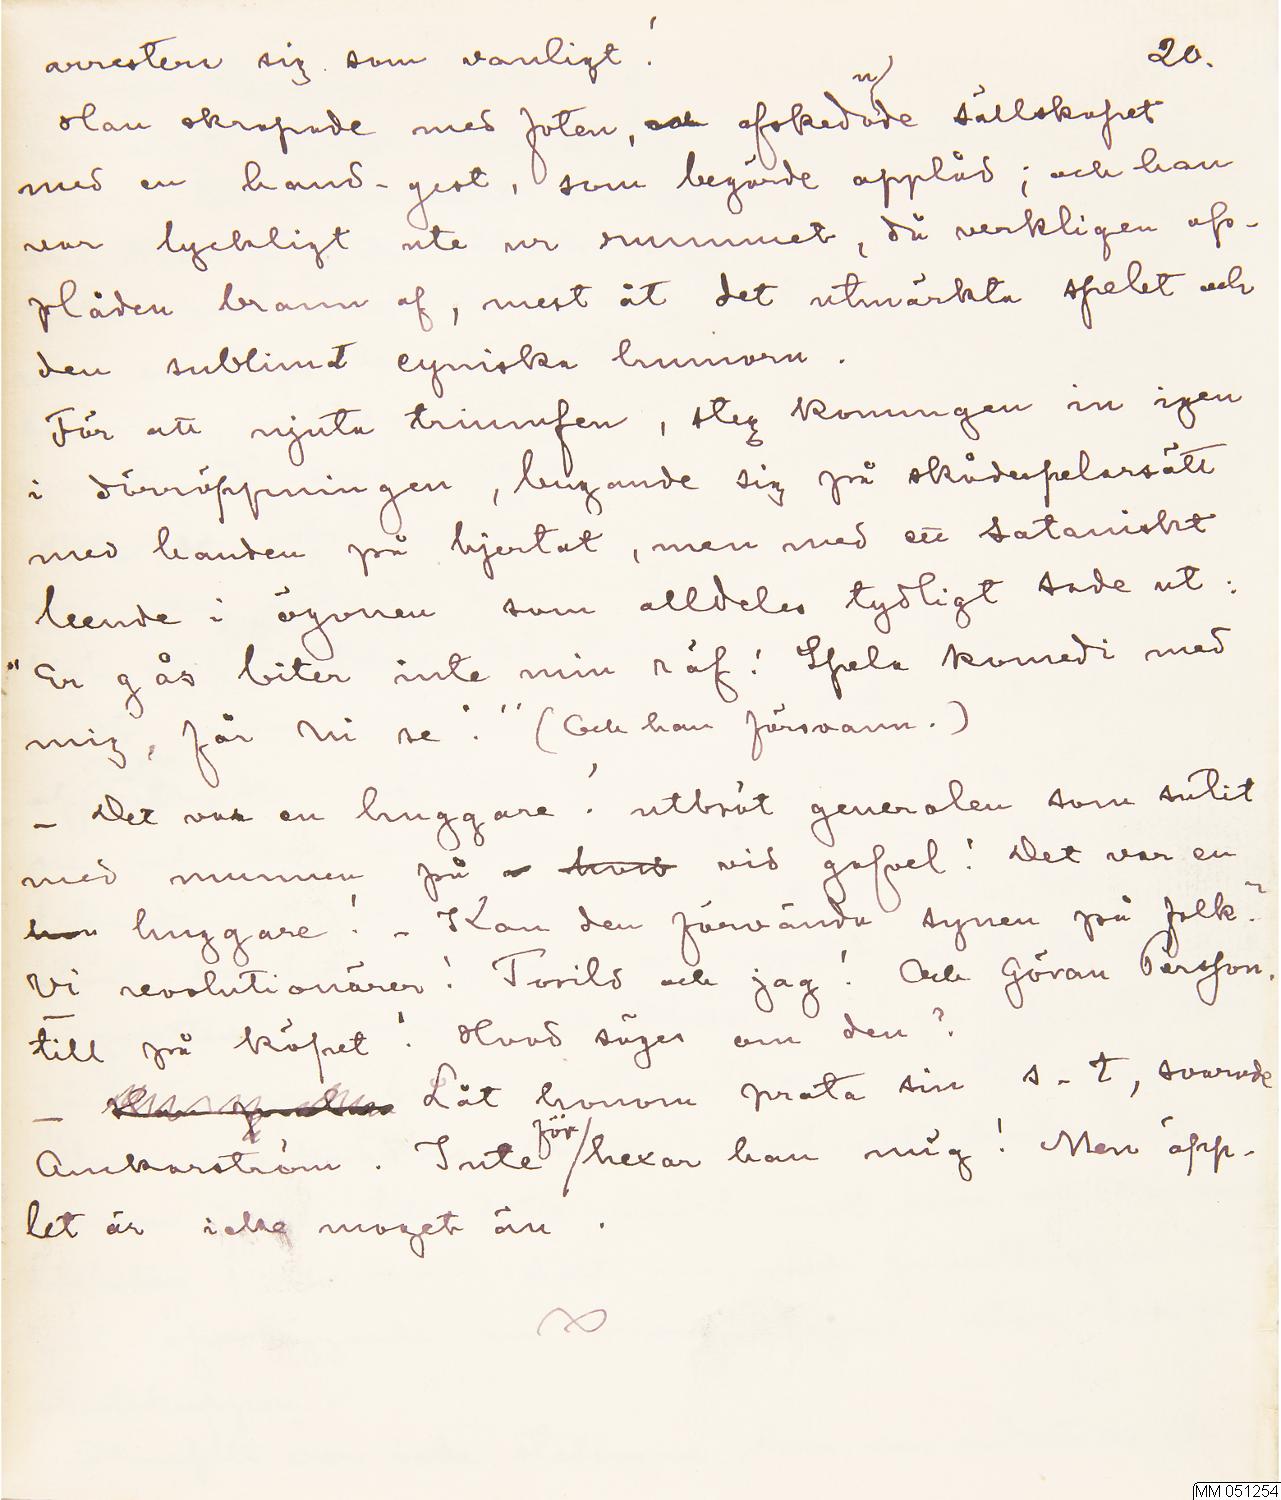 20.
arrestera sig som vanligt!
Han skrapade med foten, afskedade sällskapet
med en hand-gest, som begärde applåd; och han
var lyckligt ute ur rummet, då verkligen ap-
plåden brann af, mest åt det utmärkta spelet och
den sublimt cyniska humorn.
För att njuta triumfen, steg konungen in igen
i dörröppningen, bugande sig på skådespelarsätt
med handen på hjertat, men med ett sataniskt
leende i ögonen som alldeles tydligt sade ut:
"Er gås biter inte min räf! Spela komedi med
mig, får Ni se!" (Och han försvann.)
– Det var en huggare! utbröt generalen som sutit
med munnen på vid gafvel! Det var en
huggare! – Kan den förvända synen på folk?
Vi revolutionärer! Torild och jag! Och Göran Persson.
till på köpet! Hvad säges om den?
– Låt honom prata sin s–t, svarade
Anckarström. Inte förhexar han mig! Men äpp-
let är icke moget än.
MM 051254